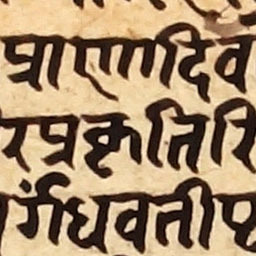 प्राणादिव
रप्रकृतिरि
र्गंधवतीप्